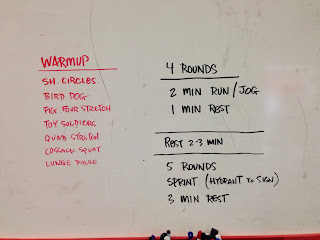 WARMUP
SH. CIRCLES
BIRD DOG
FIG FOUR STRETCH
TOY SOLDIERS
QUAD STRETCH
COSSACK SQUAT
LUNGE PULSE
4 ROUNDS
2 MIN RUN/JOG
1 MIN REST
REST 2-3 MIN
5 ROUNDS
SPRINT (HYDRANT TO SIGN)
3 MIN REST